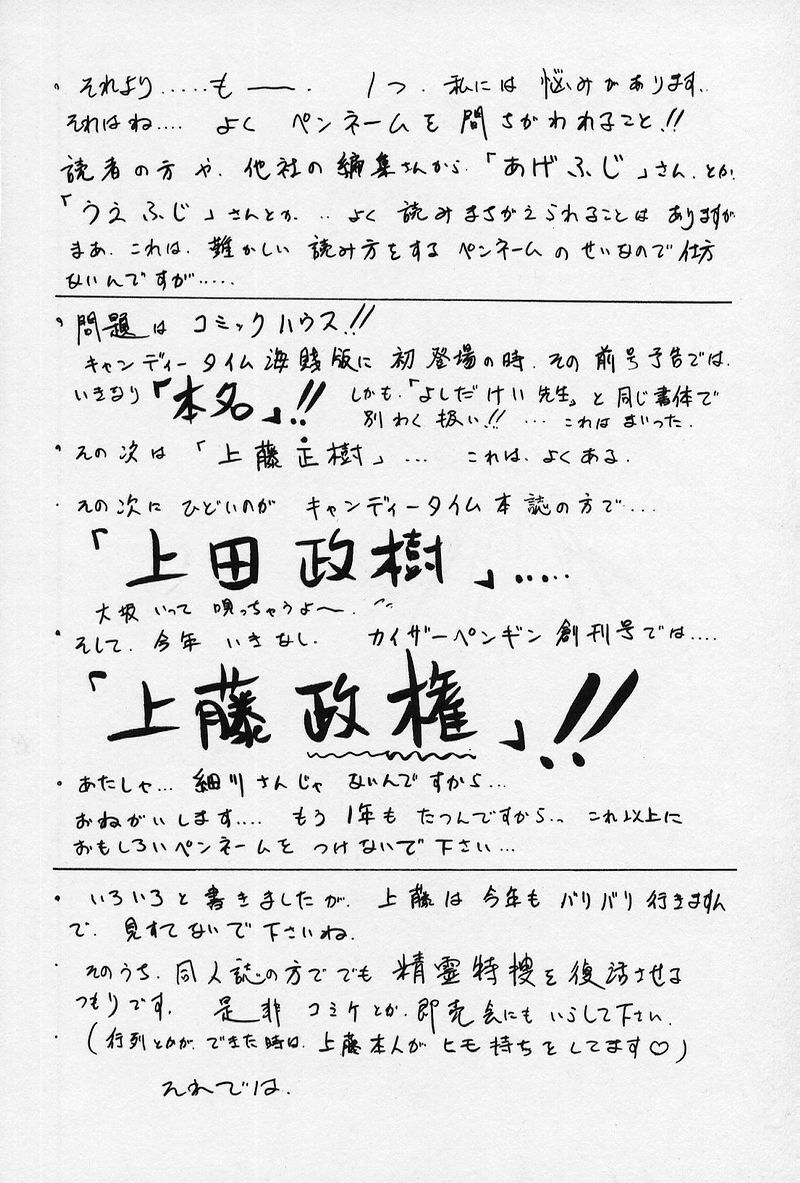 。それより.....も——. 1つ. 私には 悩みがあります.
それはね.... よく ペンネームを 間ちがわれること!!
読者の方や、他社の編集さんから.「あげふじ」さん.とか.
「うえふじ」さんとか... よく 読みまちがえられることは ありますが
まあ.これは.難かしい 読み方をする ペンネームのせいなので仕方
ないんですが.....
。問題は コミックハウス!!
キャンディータイム海賊版に 初登場の時.その前号予告では.
いきなり「本名」!! しかも.「よしだけい先生」と同じ書体で
別わく扱い!! ... これはまいった.
。その次は 「上藤正樹」... これは.よくある.
・その次に ひどいのが キャンディータイム本誌の方で...
「上田政樹」.....
大坂 いって 唄っちゃうよ〜.
。そして.今年 いきなし. カイザーペンギン創刊号では....
「上藤政権」!!
。あたしゃ... 細川さんじゃ ないんですから...
おねがいします.... もう 1年も たつんですから.. これ以上に
おもしろいペンネームを つけないで下さい...
。いろいろと書きましたが. 上藤は 今年も バリバリ行きますん
で. 見すてないで下さいね.
・そのうち.同人誌の方ででも 精霊特捜を復活させる
つもりです. 是非 コミケとか.即売会にもいらして下さい.
・(行列とかが.できた時は.上藤本人が ヒモ持ちをしてます♡)
それでは.